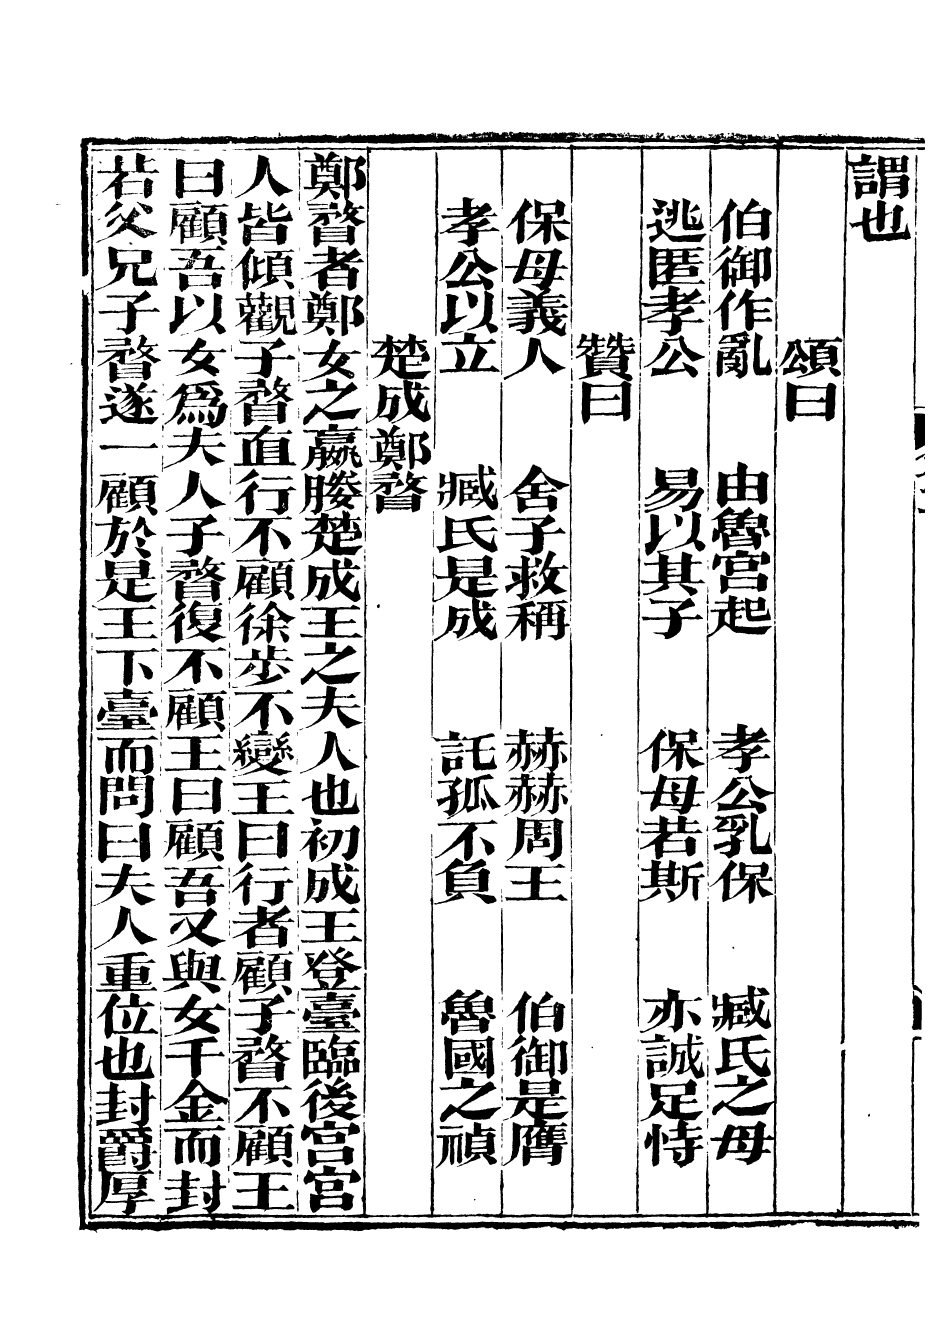 謂也
頌曰
伯御作亂　由魯宮起　孝公乳保　臧氏之母
逃匿孝公　易以其子　保母若斯　亦誠足恃
贊曰
保母義人　舍子救稱　赫赫周王　伯御是膺
孝公以立　臧氏是成　託孤不負　魯國之禎
楚成鄭瞀
鄭瞀者鄭女之嬴媵楚成王之夫人也初成王登臺臨後宮宮
人皆傾觀子瞀直行不顧徐步不變王曰行者顧子瞀不顧王
曰顧吾以女爲夫人子瞀復不顧王曰顧吾又與女千金而封
若父兄子瞀遂一顧於是王下臺而問曰夫人重位也封爵厚